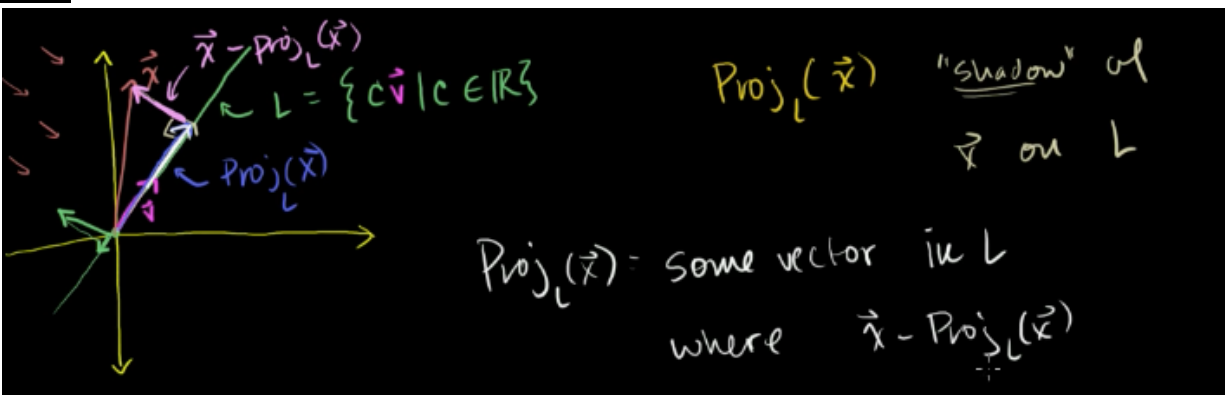 x⃗ - Proj_L(x⃗)
x⃗
L = {c v⃗ | c ∈ ℝ}
Proj_L(x⃗)
v⃗
Proj_L(x⃗) "shadow" of
x⃗ on L
Proj_L(x⃗) = some vector in L
where x⃗ - Proj_L(x⃗)